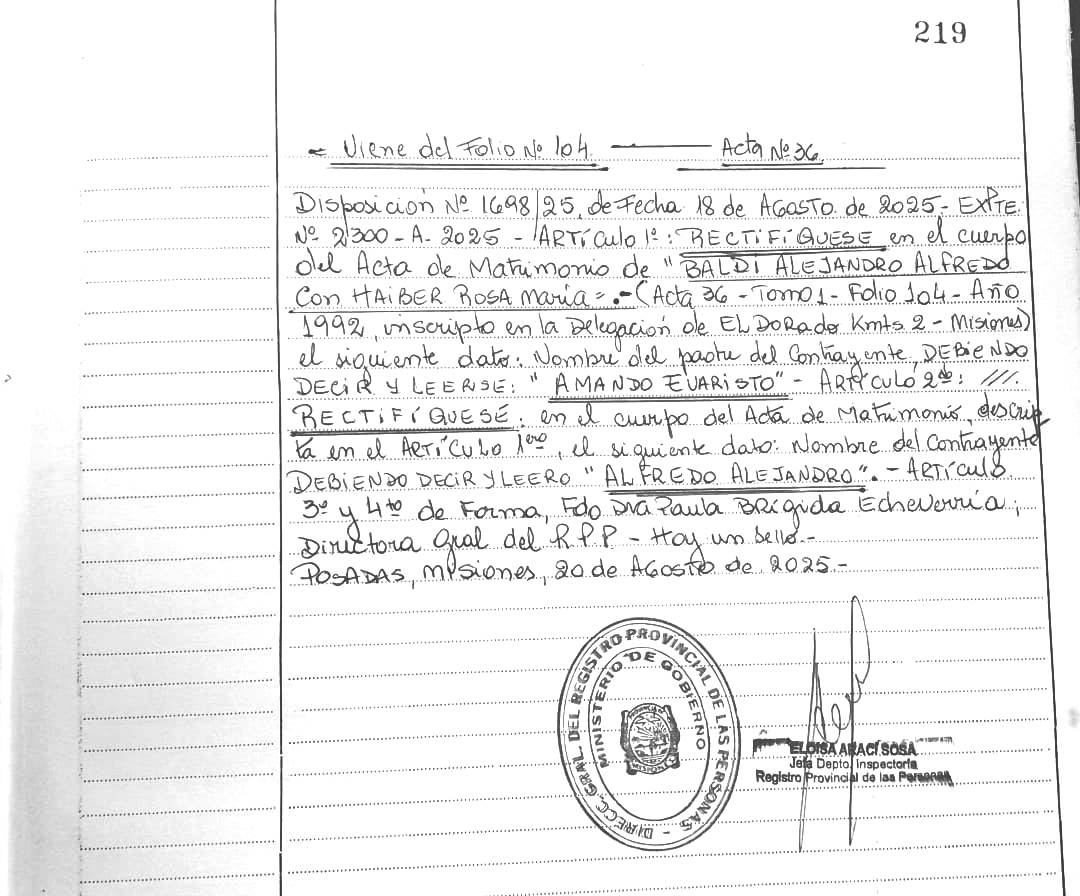 219
Viene del Folio Nº 104. Acta Nº 36
Disposición Nº 1698/25, de Fecha 18 de AGOSTO de 2025.- EXPTE.
Nº 2300 - A - 2025 - ARTÍCULO 1º: RECTIFÍQUESE en el cuerpo
del Acta de Matrimonio de "BALDI ALEJANDRO ALFREDO
Con HAIBER ROSA María=.-(Acta 36 - Tomo 1 - Folio 104 - Año
1992, inscripto en la Delegación de ELDORADO Kmts 2 - Misiones)
el siguiente dato: Nombre del padre del Contrayente, DEBIENDO
DECIR Y LEERSE: "AMANDO EVARISTO" - ARTÍCULO 2do: ///.
RECTIFÍQUESE: en el cuerpo del Acta de Matrimonio, descrip
ta en el ARTÍCULO 1ero, el siguiente dato: Nombre del Contrayente
DEBIENDO DECIR Y LEERO "ALFREDO ALEJANDRO".- ARTÍCULO
3º y 4to de Forma, Fdo Dra Paula BRígida Echeverría;
Directora Gral del R.P.P - Hay un Sello.-
POSADAS, Misiones, 20 de AGOSTO de 2025.-
DIRECC. GRAL. DEL REGISTRO PROVINCIAL DE LAS PERSONAS -
MINISTERIO DE GOBIERNO
MISIONES
ELOISA ARACÍ SOSA
Jefa Depto. Inspectoría
Registro Provincial de las Personas